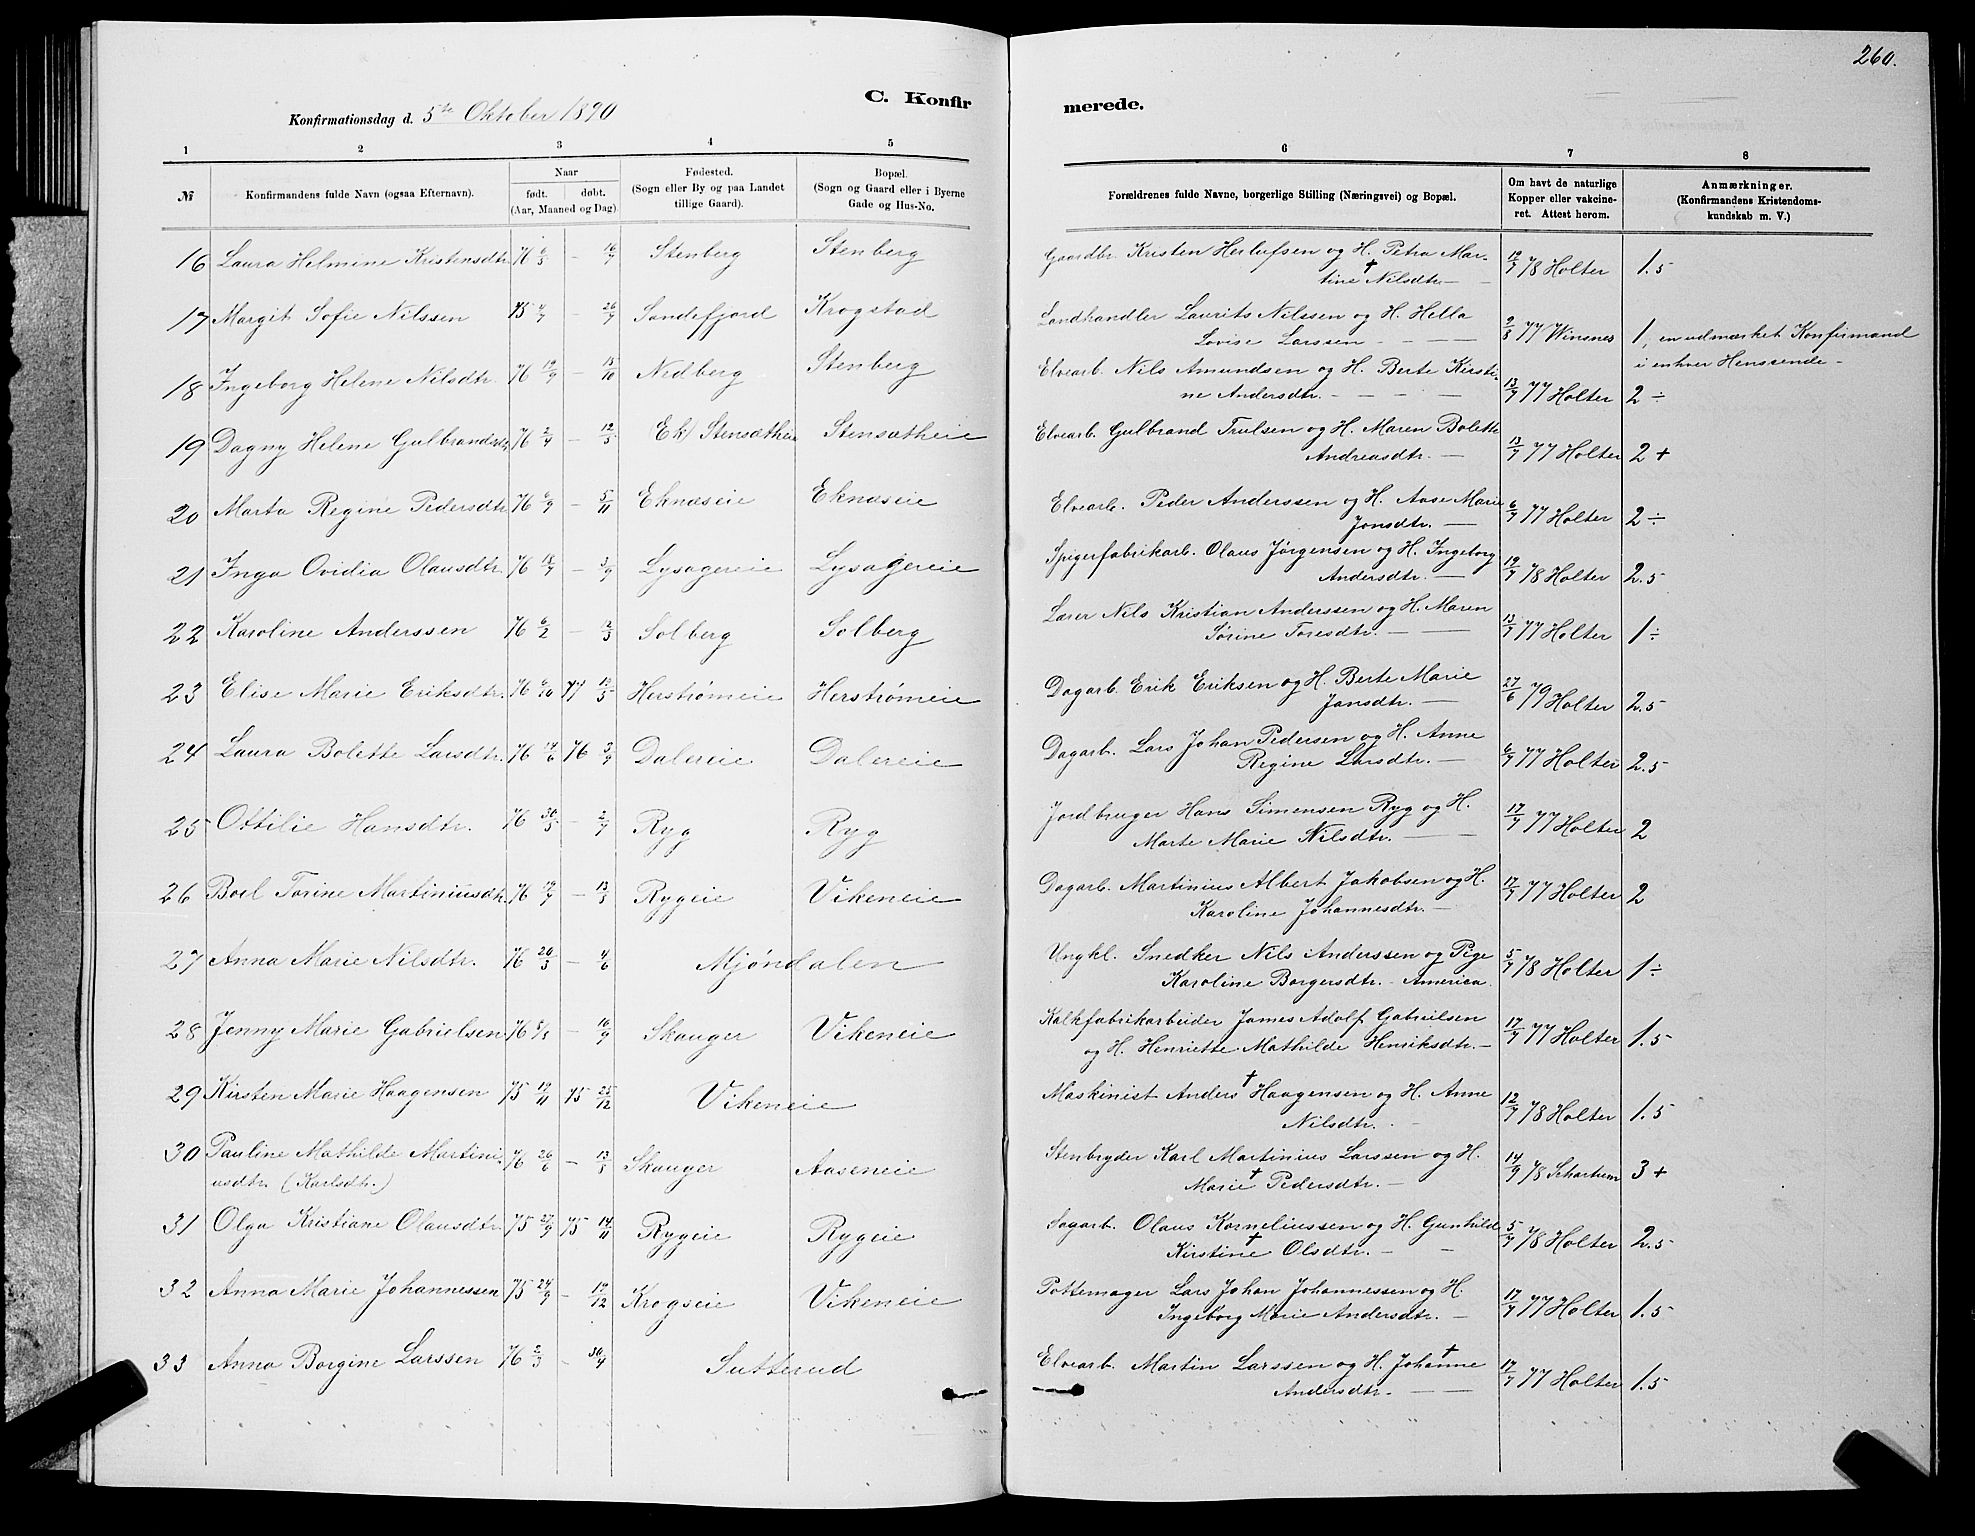 260.
C. Konfirmerede.
Konfirmationsdag d. 5te Oktober 1890
1 2 3 4 5 6 7 8
№ Konfirmandens fulde Navn (ogsaa Efternavn). Naar født. døbt. (Aar, Maaned og Dag). Fødested. (Sogn eller By og paa Landet tillige Gaard). Bopæl. (Sogn og Gaard eller i Byerne Gade og Hus-No. Forældrenes fulde Navne, borgerlige Stilling (Næringsvei) og Bopæl. Om havt de naturlige Kopper eller vakcineret. Attest herom. Anmærkninger. (Konfirmandens Kristendomskundskab m. V.)
16 Laura Helmine Kristensdtr. 76 6/5 – 16/7 Stenberg Stenberg Gaardbr. Kristen Herlufsen og H. Petra Mar-
tine † Nilsdtr. – 12/7 78 Holter 1.5
17 Margit Sofie Nilssen 75 4/7 – 26/7 Sandefjord Krogstad Landhandler Laurits Nilssen og H. Hella
Lovise Larssen – – – 2/8 77 Winsnes 1, en udmærket Konfirmand
i enhver Henseende –
18 Ingeborg Helene Nilsdtr. 76 19/9 – 15/10 Nedberg Stenberg Elvearb. Nils Amundsen og H. Berte Kirsti-
ne Andersdtr. – – – – 13/7 77 Holter 2 ÷
19 Dagny Helene Gulbrandsdtr. 76 2/4 – 12/5 Ek) Stensætheie Stensætheie Elvearb. Gulbrand Trulsen og H. Maren Bolette
Andreasdtr. – 13/7 77 Holter 2 +
20 Marta Regine Pedersdtr. 76 6/9 – 5/11 Eknæseie Eknæseie Elvearb. Peder Anderssen og H. Aase Marie
Jonsdtr. – 6/7 77 Holter 2 ÷
21 Inga Ovidia Olausdtr. 76 18/7 – 3/9 Lysagereie Lysagereie Spigerfabrikarb. Olaus Jørgensen og H. Ingeborg
Andersdtr. – 12/7 78 Holter 2.5
22 Karoline Anderssen 76 6/2 – 12/3 Solberg Solberg Lærer Nils Kristian Anderssen og H. Maren
Sørine Toresdtr. – – 13/7 77 Holter 1 ÷
23 Elise Marie Eriksdtr. 76 6/10 77 12/5 Herstrømeie Herstrømeie Dagarb. Erik Eriksen og H. Berte Marie
Jansdtr. – 27/6 79 Holter 2.5
24 Laura Bolette Larsdtr. 76 14/6 76 3/9 Dalereie Dalereie Dagarb. Lars Johan Pedersen og H. Anne
Regine Larsdtr. – 6/7 77 Holter 2.5
25 Ottilie Hansdtr. 76 30/5 – 2/7 Ryg Ryg Jordbruger Hans Simensen Ryg og H.
Marte Marie Nilsdtr. – – 17/7 77 Holter 2
26 Boel Torine Martiniusdtr. 76 19/7 – 13/8 Rygeie Vikeneie Dagarb. Martinius Albert Jakobsen og H.
Karoline Johannesdtr. – 17/7 77 Holter 2
27 Anna Marie Nilsdtr. 76 20/3 – 4/6 Mjøndalen Ungkl. Snedker Nils Anderssen og Pige
Karoline Borgersdtr. – America. 5/7 78 Holter 1 ÷
28 Jenny Marie Gabrielsen 76 5/8 – 10/9 Skauger Vikeneie Kalkfabrikarbeider James Adolf Gabrielsen
og H. Henriette Mathilde Henriksdtr. – 17/7 77 Holter 1.5
29 Kirsten Marie Haagensen 75 19/11 75 25/12 Vikeneie Maskinist Anders † Haagensen og H. Anne
Nilsdtr. – 12/7 78 Holter 1.5
30 Pauline Mathilde Martini-
usdtr. (Karlsdtr.) 76 26/6 – 13/8 Skauger Aaseneie Stenbryder Karl Martinius Larssen og H.
Marie † Pedersdtr. – 14/9 78 Schartum 3 +
31 Olga Kristiane Olausdtr. 75 27/9 75 14/11 Rygeie Rygeie Sagarb. Olaus Korneliussen og H. Gunhild
Kirstine † Olsdtr. – – 5/7 78 Holter 2.5
32 Anna Marie Johannessen 75 24/9 – 19/12 Krogseie Vikeneie Pottemager Lars Johan Johannessen og H.
Ingeborg Marie Andersdtr. – 17/7 77 Holter 1.5
33 Anna Borgine Larssen 76 2/3 – 30/4 Sutterud Elvearb. Martin Larssen og H. Johanne †
Andersdtr. – – 17/7 77 Holter 1.5